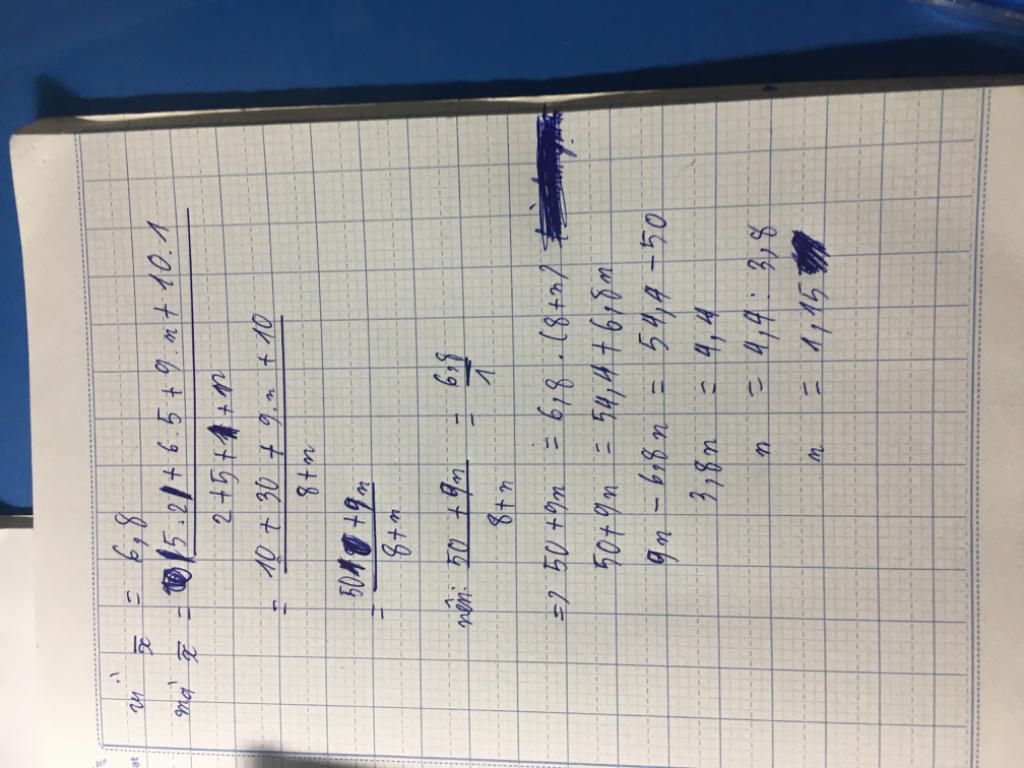 vì x̄ = 6,8
mà x̄ = 5.2 + 6.5 + 9.n + 10.1
2+5+1+n
= 10 + 30 + 9.n + 10
8+n
= 50 + 9n
8+n
nên: 50 + 9n = 6,8
8+n 1
=> 50 + 9n = 6,8 . (8+n)
50 + 9n = 54,4 + 6,8n
9n - 6,8n = 54,4 - 50
3,8n = 4,4
n = 4,4 : 3,8
n = 1,15